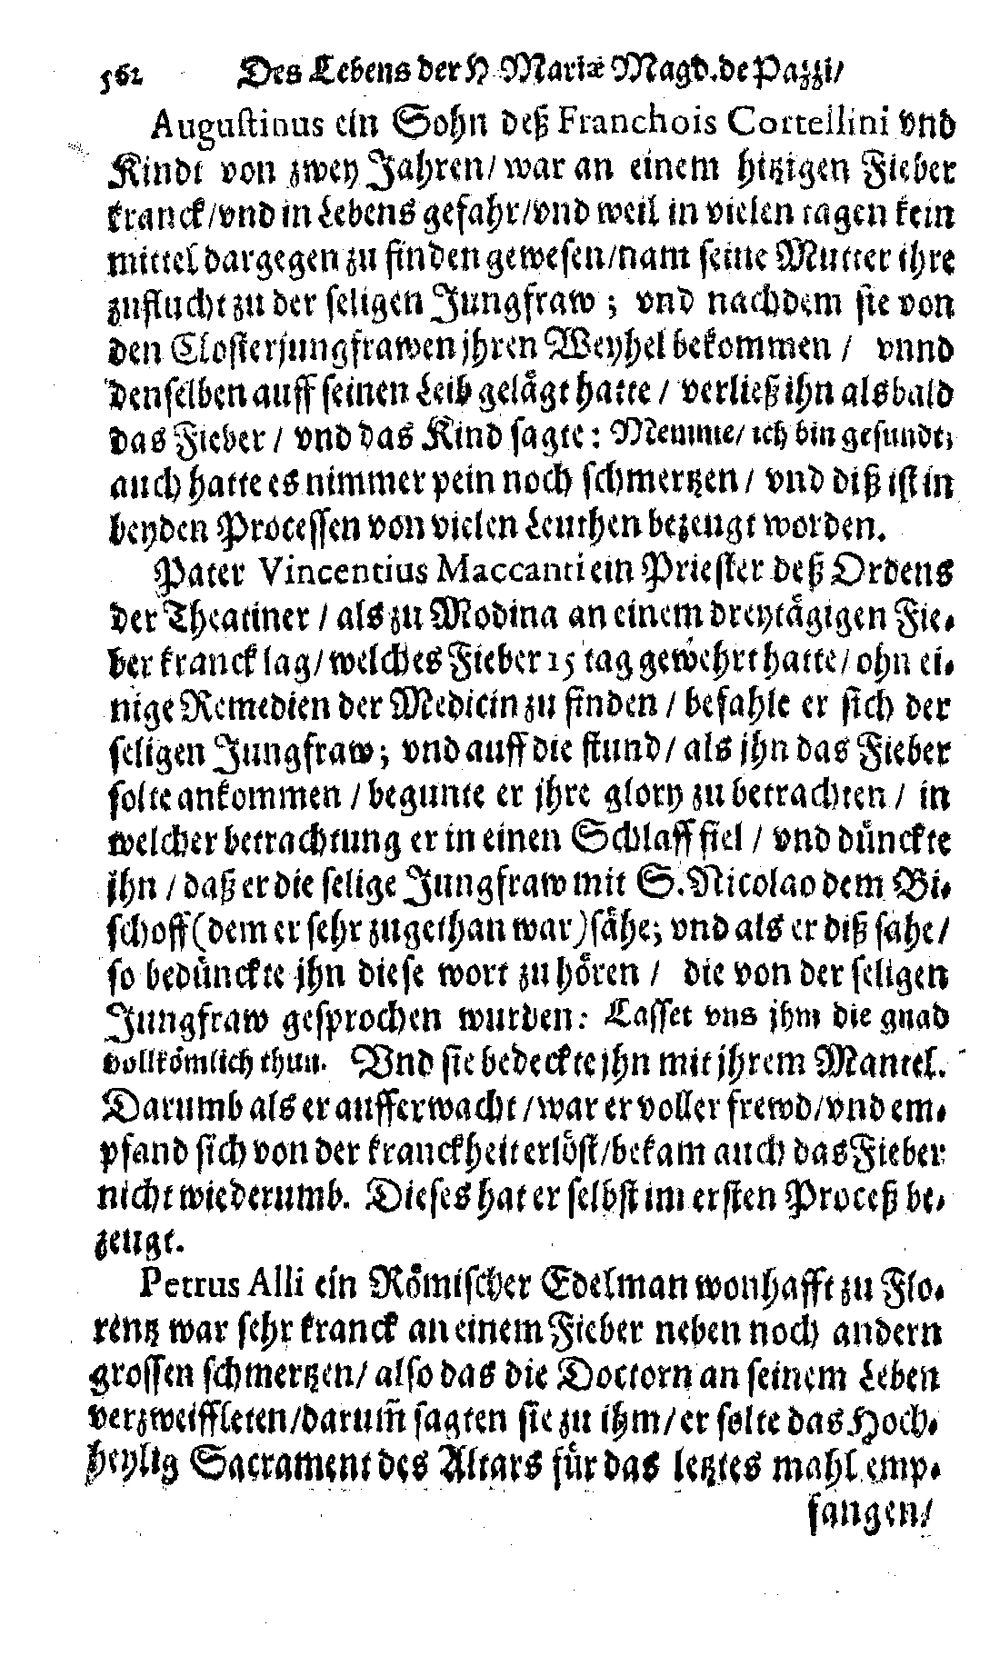 562 Des Lebens der H. Mariæ Magd. de Pazzi/
Augustinus ein Sohn deß Franchois Cortellini vnd
Kindt von zwey Jahren/ war an einem hitzigen Fieber
kranck/ vnd in Lebens gefahr/ vnd weil in vielen tagen kein
mittel dargegen zu finden gewesen/ nam seine Mutter ihre
zuflucht zu der seligen Jungfraw; vnd nachdem sie von
den Closterjungfrawen jhren Weyhel bekommen/ vnnd
denselben auff seinen Leib gelägt hatte/ verließ ihn alsbald
das Fieber/ vnd das Kind sagte: Memme/ ich bin gesundt;
auch hatte es nimmer pein noch schmertzen/ vnd diß ist in
beyden Processen von vielen Leuthen bezeugt worden.
Pater Vincentius Maccanti ein Priester deß Ordens
der Theatiner/ als zu Modina an einem dreytägigen Fie-
ber kranck lag/ welches Fieber 15 tag gewehrt hatte/ ohn ei-
nige Remedien der Medicin zu finden/ befahle er sich der
seligen Jungfraw; vnd auff die stund/ als jhn das Fieber
solte ankommen/ begunte er jhre glory zu betrachten/ in
welcher betrachtung er in einen Schlaff fiel/ vnd dünckte
jhn/ daß er die selige Jungfraw mit S. Nicolao dem Bi-
schoff (dem er sehr zugethan war) sähe; vnd als er diß sahe/
so bedünckte jhn diese wort zu hören/ die von der seligen
Jungfraw gesprochen wurden: Lasset vns jhm die gnad
vollkömlich thun. Vnd sie bedeckte jhn mit jhrem Mantel.
Darumb als er aufferwacht/ war er voller frewd/ vnd em-
pfand sich von der kranckheit erlöst/ bekam auch das Fieber
nicht wiederumb. Dieses hat er selbst im ersten Proceß be-
zeugt.
Petrus Alli ein Römischer Edelman wonhafft zu Flo-
rentz war sehr kranck an einem Fieber neben noch andern
grossen schmertzen/ also das die Doctorn an seinem Leben
verzweiffleten/ darum̃ sagten sie zu ihm/ er solte das Hoch-
heylig Sacrament des Altars für das letztes mahl emp-
fangen/